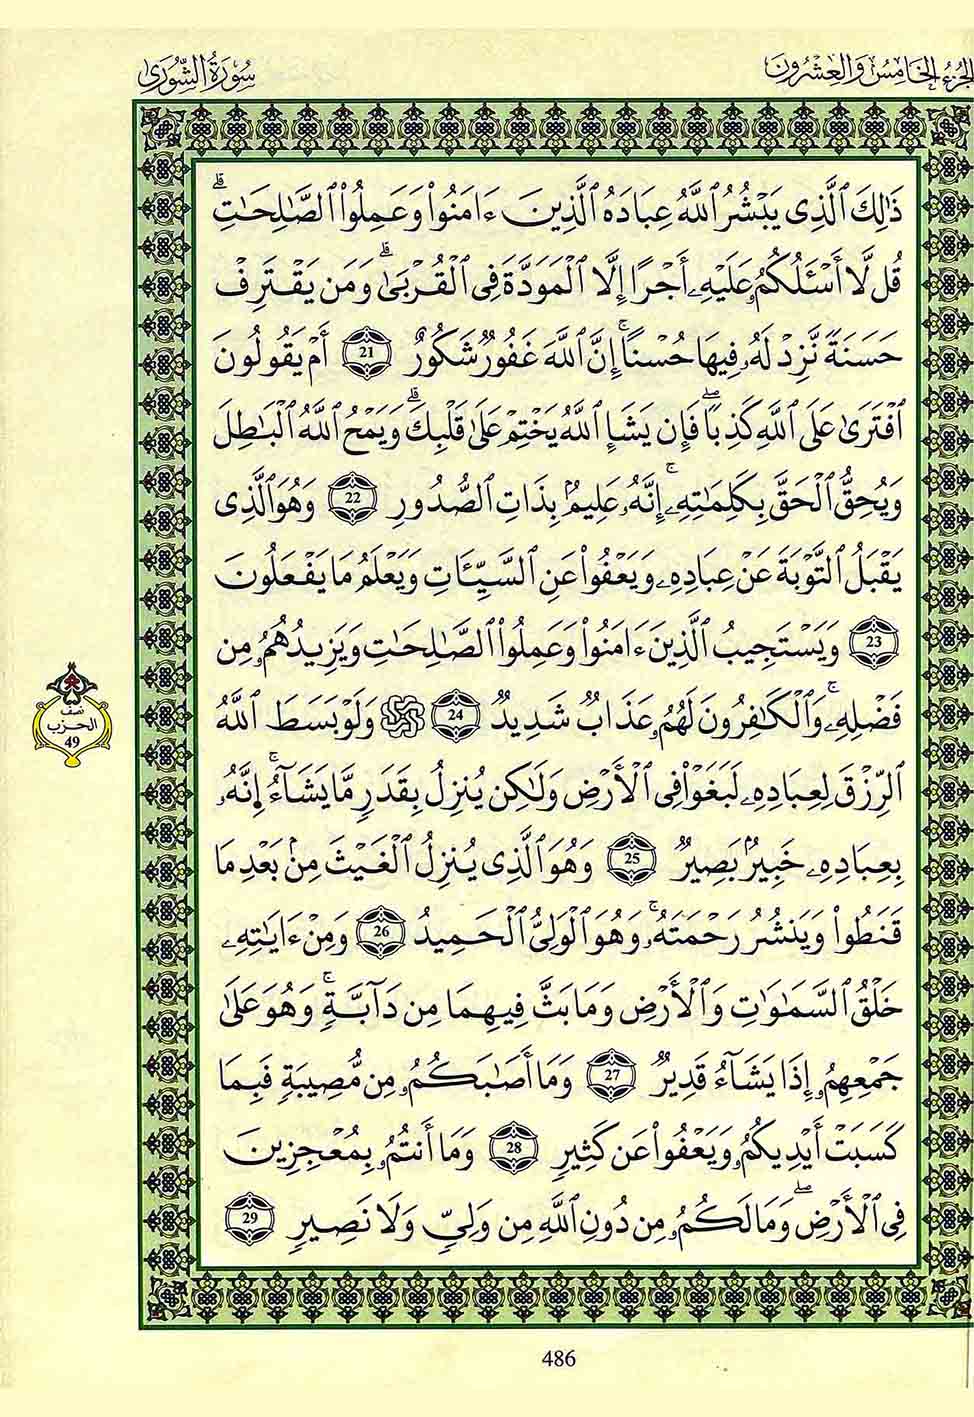 الجزء الخامس والعشرون
سورة الشورى
ذَٰلِكَ ٱلَّذِى يَبْشُرُ ٱللَّهُ عِبَادَهُ ٱلَّذِينَ ءَامَنُوا۟ وَعَمِلُوا۟ ٱلصَّٰلِحَٰتِ ۗ
قُل لَّا أَسْـَٔلُكُمُۥ عَلَيْهِۦ أَجْرًا إِلَّا ٱلْمَوَدَّةَ فِى ٱلْقُرْبَىٰ ۗ وَمَن يَقْتَرِفْ
حَسَنَةً نَّزِدْ لَهُۥ فِيهَا حُسْنًا ۚ إِنَّ ٱللَّهَ غَفُورٌ شَكُورٌ 21 أَمْ يَقُولُونَ
ٱفْتَرَىٰ عَلَى ٱللَّهِ كَذِبًا ۖ فَإِن يَشَإِ ٱللَّهُ يَخْتِمْ عَلَىٰ قَلْبِكَ ۗ وَيَمْحُ ٱللَّهُ ٱلْبَٰطِلَ
وَيُحِقُّ ٱلْحَقَّ بِكَلِمَٰتِهِۦ ۚ إِنَّهُۥ عَلِيمٌۢ بِذَاتِ ٱلصُّدُورِ 22 وَهُوَ ٱلَّذِى
يَقْبَلُ ٱلتَّوْبَةَ عَنْ عِبَادِهِۦ وَيَعْفُوا۟ عَنِ ٱلسَّيِّـَٔاتِ وَيَعْلَمُ مَا يَفْعَلُونَ
23 وَيَسْتَجِيبُ ٱلَّذِينَ ءَامَنُوا۟ وَعَمِلُوا۟ ٱلصَّٰلِحَٰتِ وَيَزِيدُهُمُۥ مِن
فَضْلِهِۦ ۚ وَٱلْكَٰفِرُونَ لَهُمُۥ عَذَابٌ شَدِيدٌ 24 وَلَوْ بَسَطَ ٱللَّهُ
ٱلرِّزْقَ لِعِبَادِهِۦ لَبَغَوْا۟ فِى ٱلْأَرْضِ وَلَٰكِن يُنزِلُ بِقَدَرٍ مَّا يَشَآءُ ۚ إِنَّهُۥ
بِعِبَادِهِۦ خَبِيرٌۢ بَصِيرٌ 25 وَهُوَ ٱلَّذِى يُنزِلُ ٱلْغَيْثَ مِنۢ بَعْدِ مَا
قَنَطُوا۟ وَيَنشُرُ رَحْمَتَهُۥ ۚ وَهُوَ ٱلْوَلِىُّ ٱلْحَمِيدُ 26 وَمِنْ ءَايَٰتِهِۦ
خَلْقُ ٱلسَّمَٰوَٰتِ وَٱلْأَرْضِ وَمَا بَثَّ فِيهِمَا مِن دَآبَّةٍ ۚ وَهُوَ عَلَىٰ
جَمْعِهِمُۥ إِذَا يَشَآءُ قَدِيرٌ 27 وَمَا أَصَٰبَكُمُۥ مِن مُّصِيبَةٍ فَبِمَا
كَسَبَتْ أَيْدِيكُمُۥ وَيَعْفُوا۟ عَن كَثِيرٍ 28 وَمَا أَنتُمُۥ بِمُعْجِزِينَ
فِى ٱلْأَرْضِ ۖ وَمَا لَكُمُۥ مِن دُونِ ٱللَّهِ مِن وَلِىٍّ وَلَا نَصِيرٍ 29
نصف
الحزب
49
486